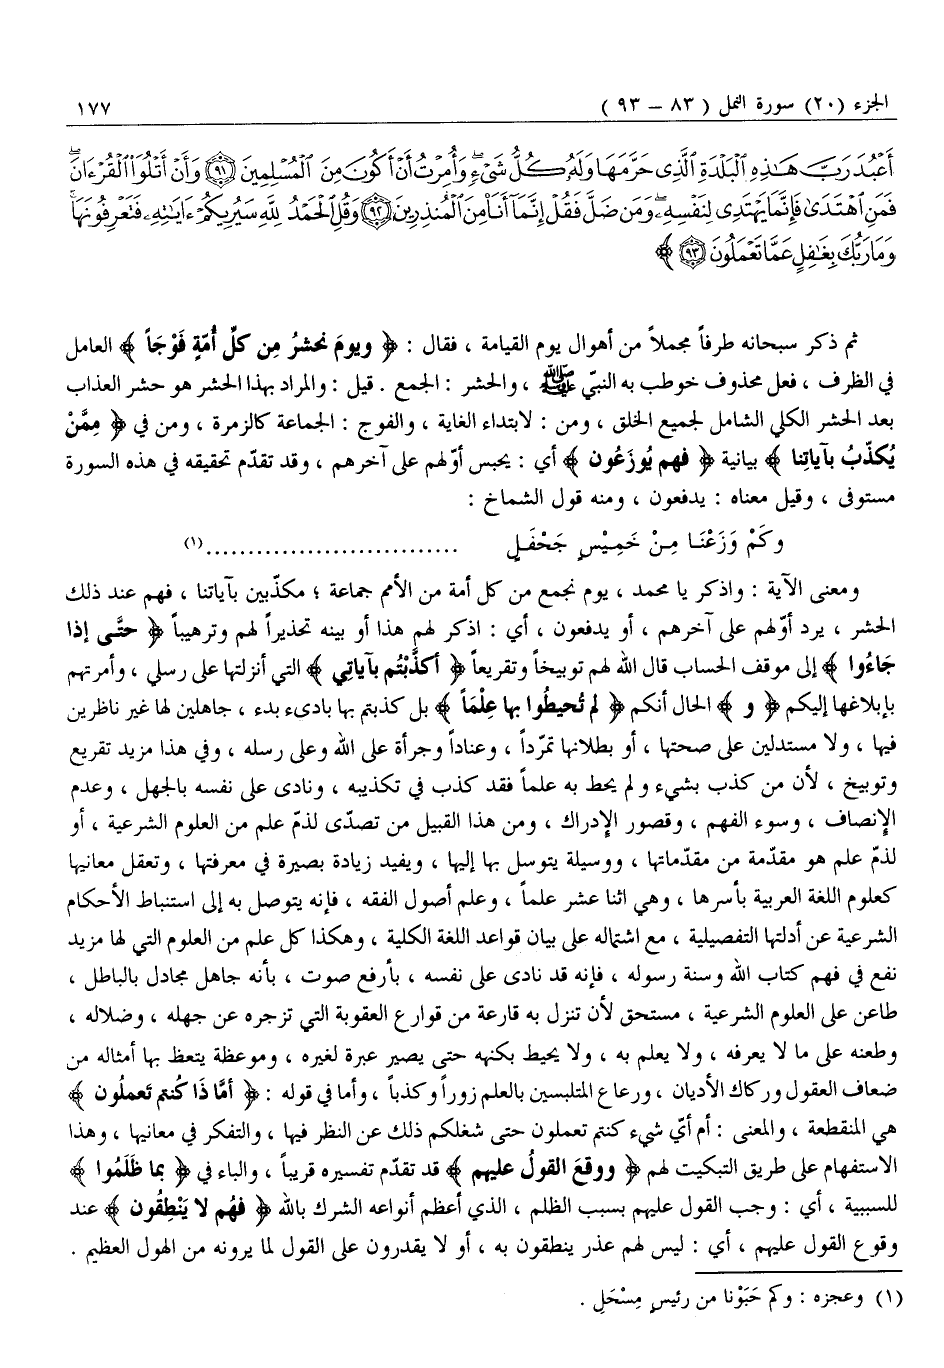 الجزء (٢٠) سورة النمل ( ٨٣ – ٩٣ ) ١٧٧
أَعْبُدَ رَبَّ هَٰذِهِ الْبَلْدَةِ الَّذِي حَرَّمَهَا وَلَهُ كُلُّ شَيْءٍ وَأُمِرْتُ أَنْ أَكُونَ مِنَ الْمُسْلِمِينَ ﴿٩١﴾ وَأَنْ أَتْلُوَا الْقُرْءَانَ
فَمَنِ اهْتَدَىٰ فَإِنَّمَا يَهْتَدِي لِنَفْسِهِ وَمَن ضَلَّ فَقُلْ إِنَّمَا أَنَا مِنَ الْمُنذِرِينَ ﴿٩٢﴾ وَقُلِ الْحَمْدُ لِلَّهِ سَيُرِيكُمْ ءَايَٰتِهِ فَتَعْرِفُونَهَا
وَمَا رَبُّكَ بِغَٰفِلٍ عَمَّا تَعْمَلُونَ ﴿٩٣﴾ ﴾
ثم ذكر سبحانه طرفاً مجملاً من أهوال يوم القيامة ، فقال : ﴿ ويومَ نحشرُ مِن كلِّ أُمّةٍ فَوْجَاً ﴾ العامل
في الظرف ، فعل محذوف خوطب به النبيّ ﷺ ، والحشر : الجمع . قيل : والمراد بهذا الحشر هو حشر العذاب
بعد الحشر الكلي الشامل لجميع الخلق ، ومن : لابتداء الغاية ، والفوج : الجماعة كالزمرة ، ومن في ﴿ مِمَّنْ
يُكذّبُ بآياتِنا ﴾ بيانية ﴿ فهم يُوزَعُون ﴾ أي : يحبس أوّلهم على آخرهم ، وقد تقدّم تحقيقه في هذه السورة
مستوفى ، وقيل معناه : يدفعون ، ومنه قول الشماخ :
وكَمْ وَزَعْنَا مِنْ خَمِيْسٍ جَحْفَلٍ ..............................(١)
ومعنى الآية : واذكر يا محمد ، يوم نجمع من كل أمة من الأمم جماعة ؛ مكذّبين بآياتنا ، فهم عند ذلك
الحشر ، يرد أوّلهم على آخرهم ، أو يدفعون ، أي : اذكر لهم هذا أو بينه تحذيراً لهم وترهيباً ﴿ حتَّى إذا
جَاءُوا ﴾ إلى موقف الحساب قال الله لهم توبيخاً وتقريعاً ﴿ أكذَّبْتُم بآياتِي ﴾ التي أنزلتها على رسلي ، وأمرتهم
بإبلاغها إليكم ﴿ و ﴾ الحال أنكم ﴿ لم تُحيطُوا بها عِلْمَاً ﴾ بل كذبتم بها بادىء بدء ، جاهلين لها غير ناظرين
فيها ، ولا مستدلين على صحتها ، أو بطلانها تمرّداً ، وعناداً وجرأة على الله وعلى رسله ، وفي هذا مزيد تقريع
وتوبيخ ، لأن من كذب بشيء ولم يحط به علماً فقد كذب في تكذيبه ، ونادى على نفسه بالجهل ، وعدم
الإنصاف ، وسوء الفهم ، وقصور الإدراك ، ومن هذا القبيل من تصدّى لذمّ علم من العلوم الشرعية ، أو
لذمّ علم هو مقدّمة من مقدّماتها ، ووسيلة يتوسل بها إليها ، ويفيد زيادة بصيرة في معرفتها ، وتعقل معانيها
كعلوم اللغة العربية بأسرها ، وهي اثنا عشر علماً ، وعلم أصول الفقه ، فإنه يتوصل به إلى استنباط الأحكام
الشرعية عن أدلتها التفصيلية ، مع اشتماله على بيان قواعد اللغة الكلية ، وهكذا كل علم من العلوم التي لها مزيد
نفع في فهم كتاب الله وسنة رسوله ، فإنه قد نادى على نفسه ، بأرفع صوت ، بأنه جاهل مجادل بالباطل ،
طاعن على العلوم الشرعية ، مستحق لأن تنزل به قارعة من قوارع العقوبة التي تزجره عن جهله ، وضلاله ،
وطعنه على ما لا يعرفه ، ولا يعلم به ، ولا يحيط بكنهه حتى يصير عبرة لغيره ، وموعظة يتعظ بها أمثاله من
ضعاف العقول وركاك الأديان ، ورعاع المتلبسين بالعلم زوراً وكذباً ، وأما في قوله : ﴿ أمَّا ذَا كُنتم تَعملُون ﴾
هي المنقطعة ، والمعنى : أم أيّ شيء كنتم تعملون حتى شغلكم ذلك عن النظر فيها ، والتفكر في معانيها ، وهذا
الاستفهام على طريق التبكيت لهم ﴿ ووقعَ القولُ عليهم ﴾ قد تقدّم تفسيره قريباً ، والباء في ﴿ بما ظَلَمُوا ﴾
للسببية ، أي : وجب القول عليهم بسبب الظلم ، الذي أعظم أنواعه الشرك بالله ﴿ فهُم لا يَنْطِقُون ﴾ عند
وقوع القول عليهم ، أي : ليس لهم عذر ينطقون به ، أو لا يقدرون على القول لما يرونه من الهول العظيم .
(١) وعجزه : وكم حَبَوْنا من رئيسٍ مِسْحَلِ .